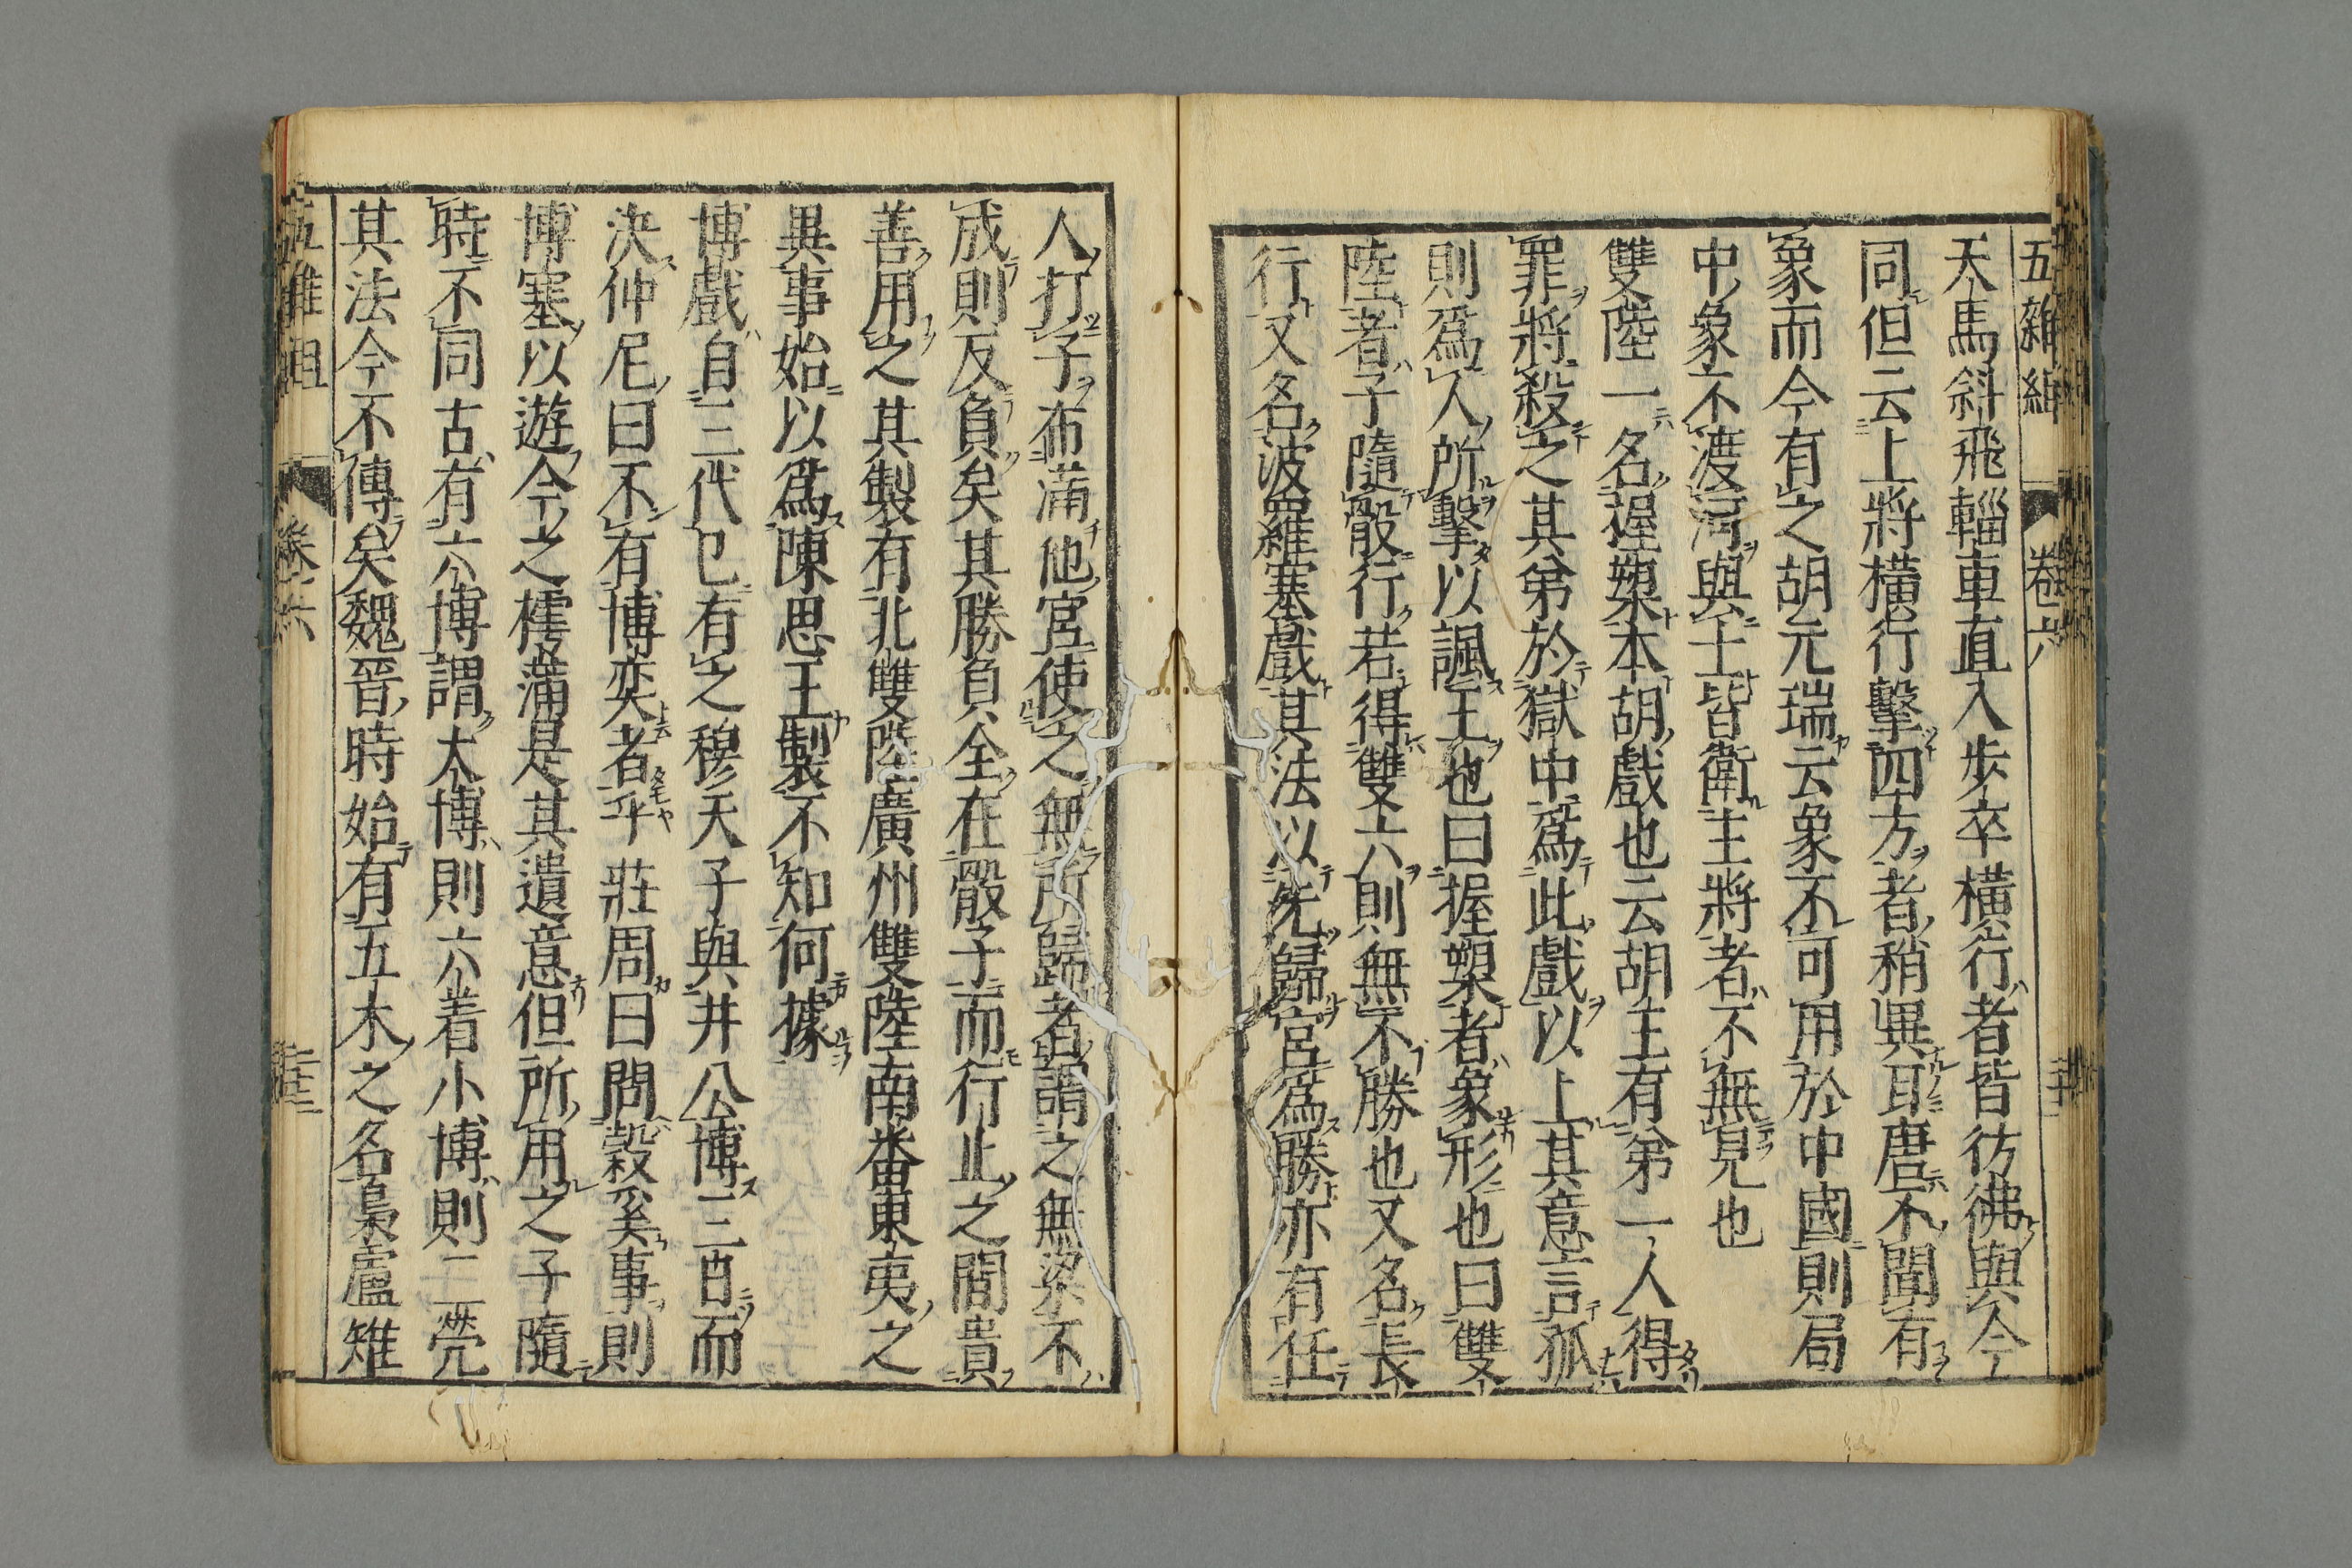 五雜組 卷六
天馬斜飛輜車直入步卒橫行者皆彷彿與今
同但云上將橫行擊四方者稍異耳唐不聞有
象而今有之胡元瑞云象不可用於中國則局
中象不渡河與士皆衛主將者不無見也
雙陸一名握槊本胡戲也云胡主有弟一人得
罪將殺之其弟於獄中為此戲以上其意言孤
則爲人所擊以諷王也曰握槊者象形也曰雙
陸者子隨骰行若得雙六則無不勝也又名長
行又名波羅塞戲其法以先歸宮爲勝亦有任
人打子布滿他宮使之無所歸者謂之無梁不
成則反負矣其勝負全在骰子而行止之間貴
善用之其製有北雙陸廣州雙陸南番東夷之
異事始以爲陳思王製不知何據
博戲自三代已有之穆天子與井公博三日而
決仲尼曰不有博奕者乎莊周曰問穀奚事則
博塞以遊今之樗蒲是其遺意但所用之子隨
時不同古有六博謂大博則六着小博則二煢
其法今不傳矣魏晉時始有五木之名梟盧雉
五雜俎 卷六